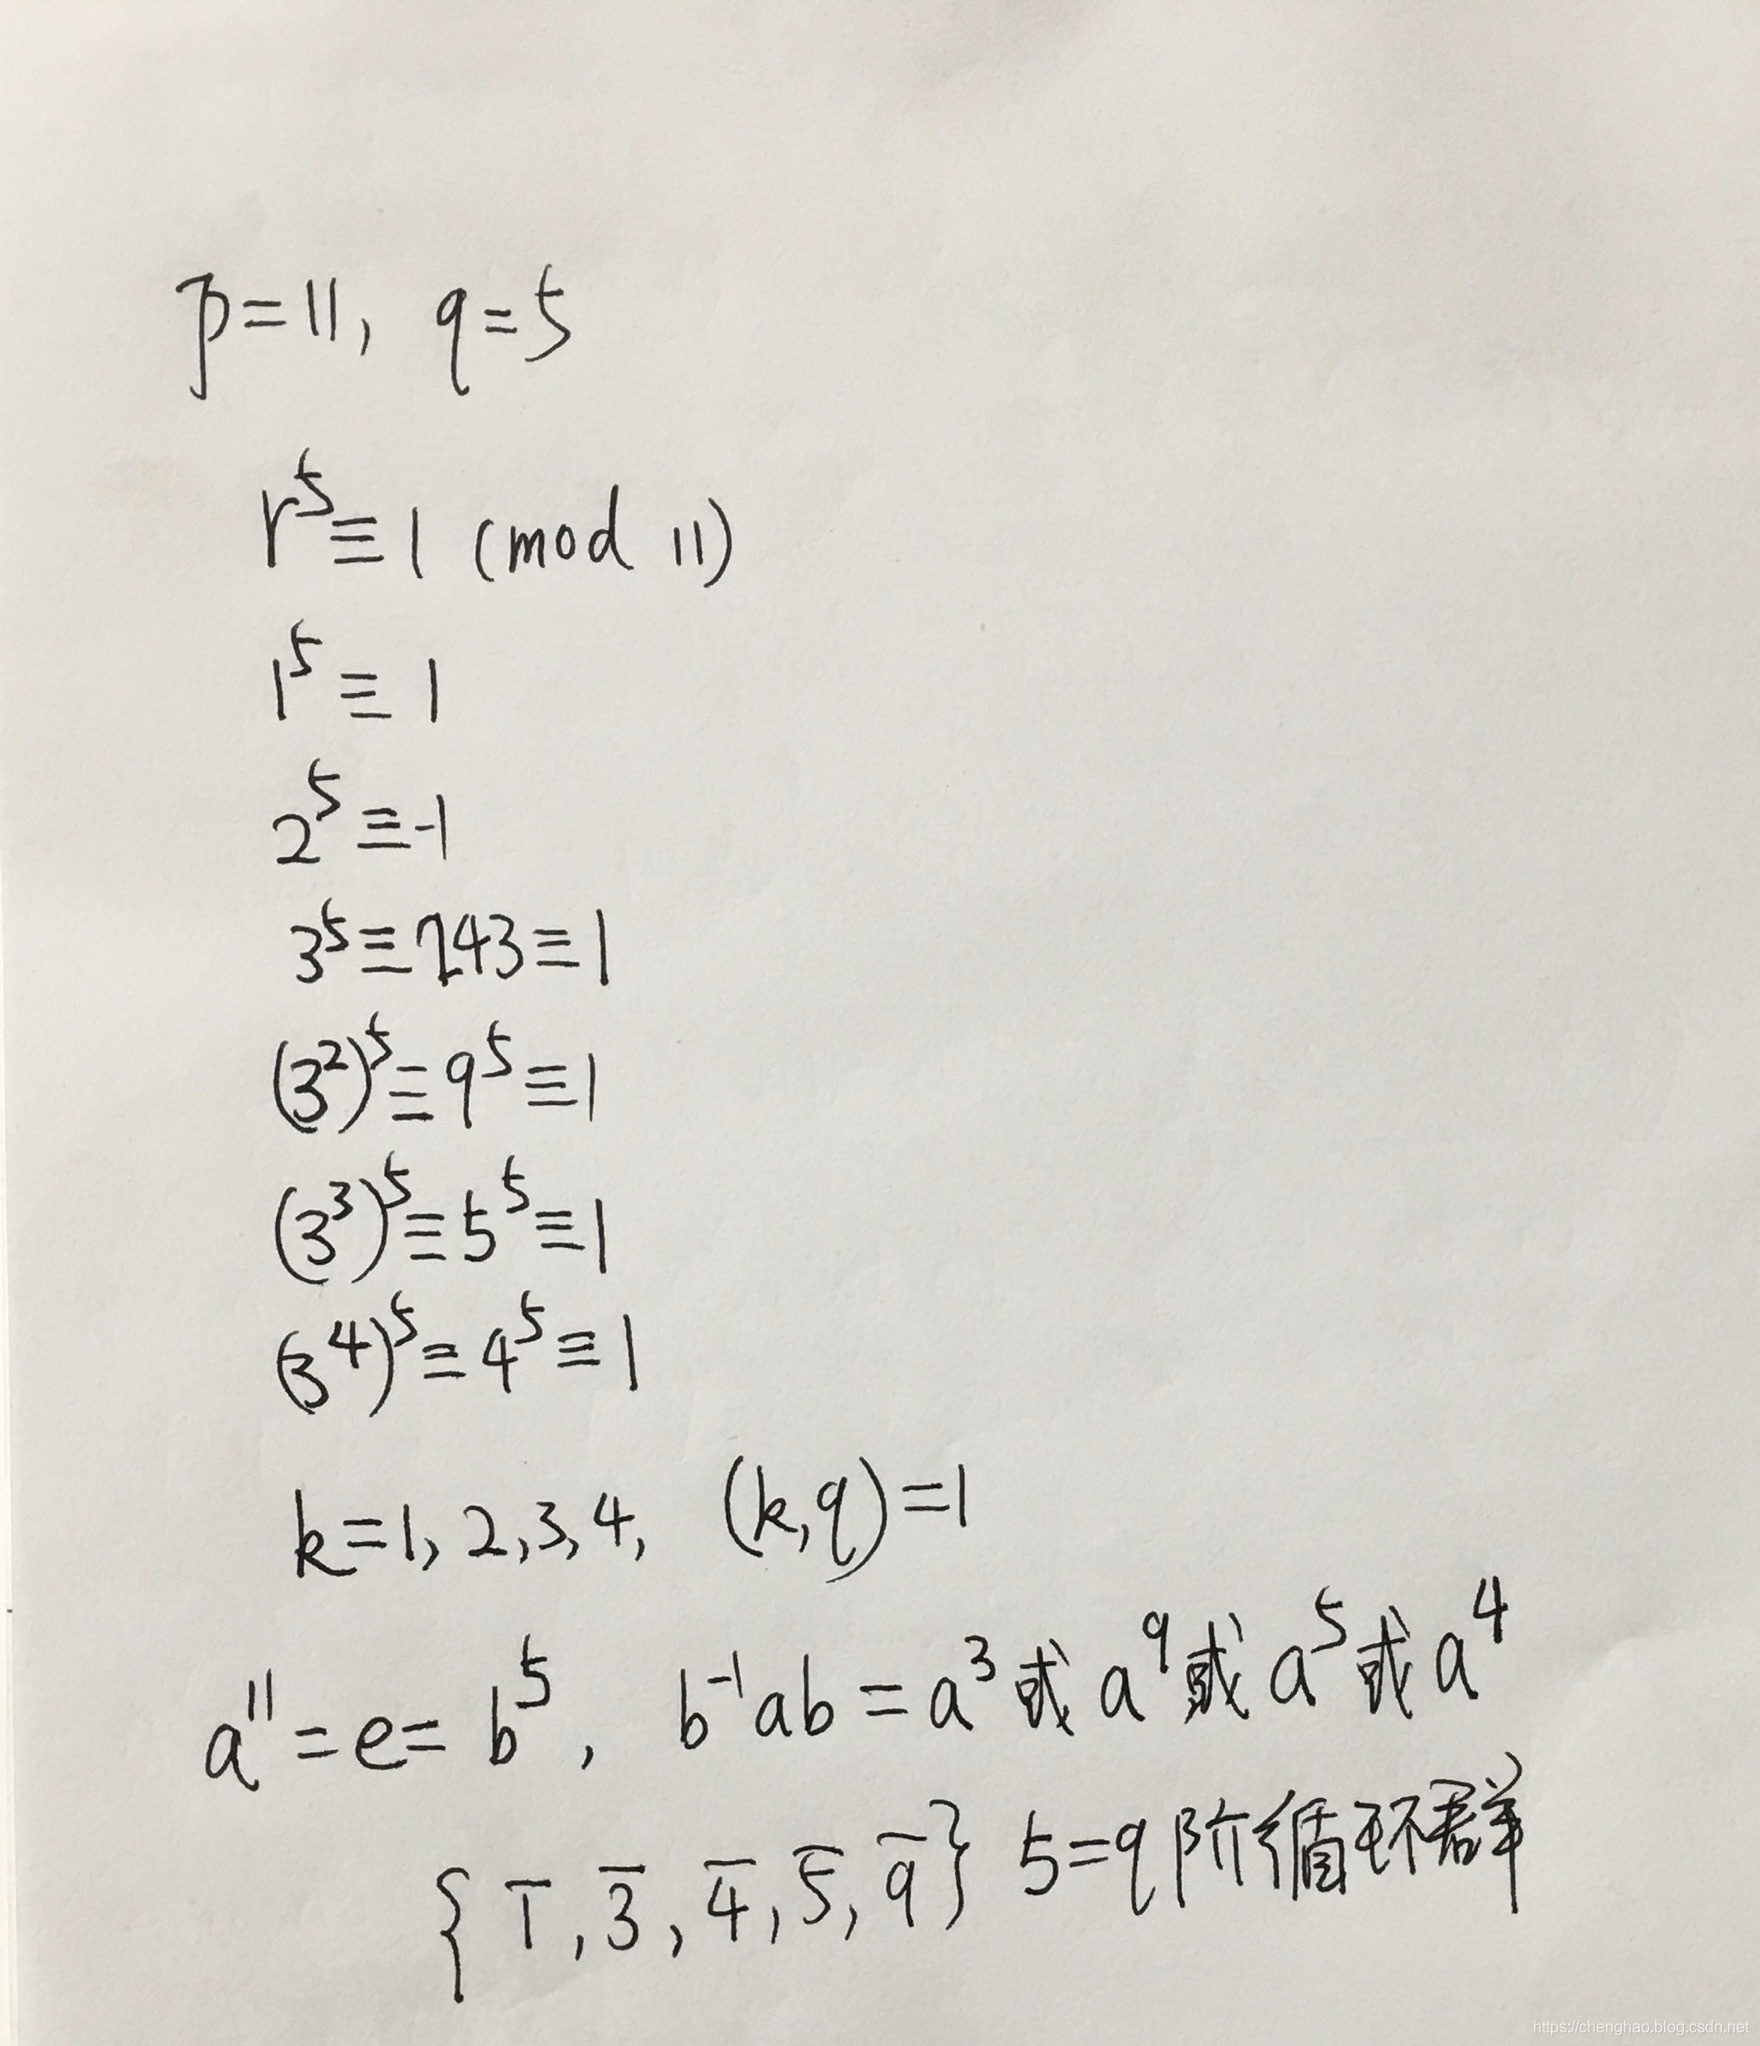 p=11, q=5
r⁵≡1 (mod 11)
1⁵≡1
2⁵≡-1
3⁵≡243≡1
(3²)⁵≡9⁵≡1
(3³)⁵≡5⁵≡1
(3⁴)⁵≡4⁵≡1
k=1,2,3,4, (k,q)=1
a¹¹=e=b⁵, b⁻¹ab=a³或a⁹或a⁵或a⁴
{1̅,3̅,4̅,5̅,9̅} 5=q阶循环群
https://chenghao.blog.csdn.net